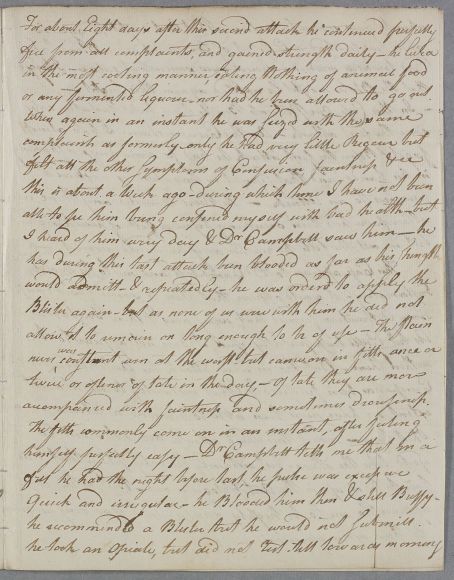 For about Eight days after this second attack he continued perfectly
free from all complaints, and gained strength daily – he lived
in the most cooling manner, eating Nothing of animal food
or any fermented liquour – nor had he been allowed to go out
When again in an instant he was seized with the same
complaints as formerly only he had very little Rigour but
felt all the other Symptoms of Confusion faintness &ca
this is about a Week ago – during which time I have not been
able to see him being confined myself with bad health – but
I heard of him every day & Dr Campbell saw him – he
has during this last attack been blooded as far as his strength
would admitt & repeatedly – he was orderd to apply the
Blister again – but as none of us were with him he did not
allow it to remain on long enough to be of use – The pain
never was constant even at the worst but came on in fitts, once or
twice or oftener of late in the day – of late they are more
accompanied with faintness and sometimes drowsiness.
The fitts commonly come on in an instant, after feeling
himself perfectly easy – Dr Campbell tells me that in a
fit he had the night before last, he pulse was excessive
Quick and irregular – he Blooded him then & still Buffy –
he recommended a Blister but he would not submitt.
he took an Opiate, but did not rest till towards morning